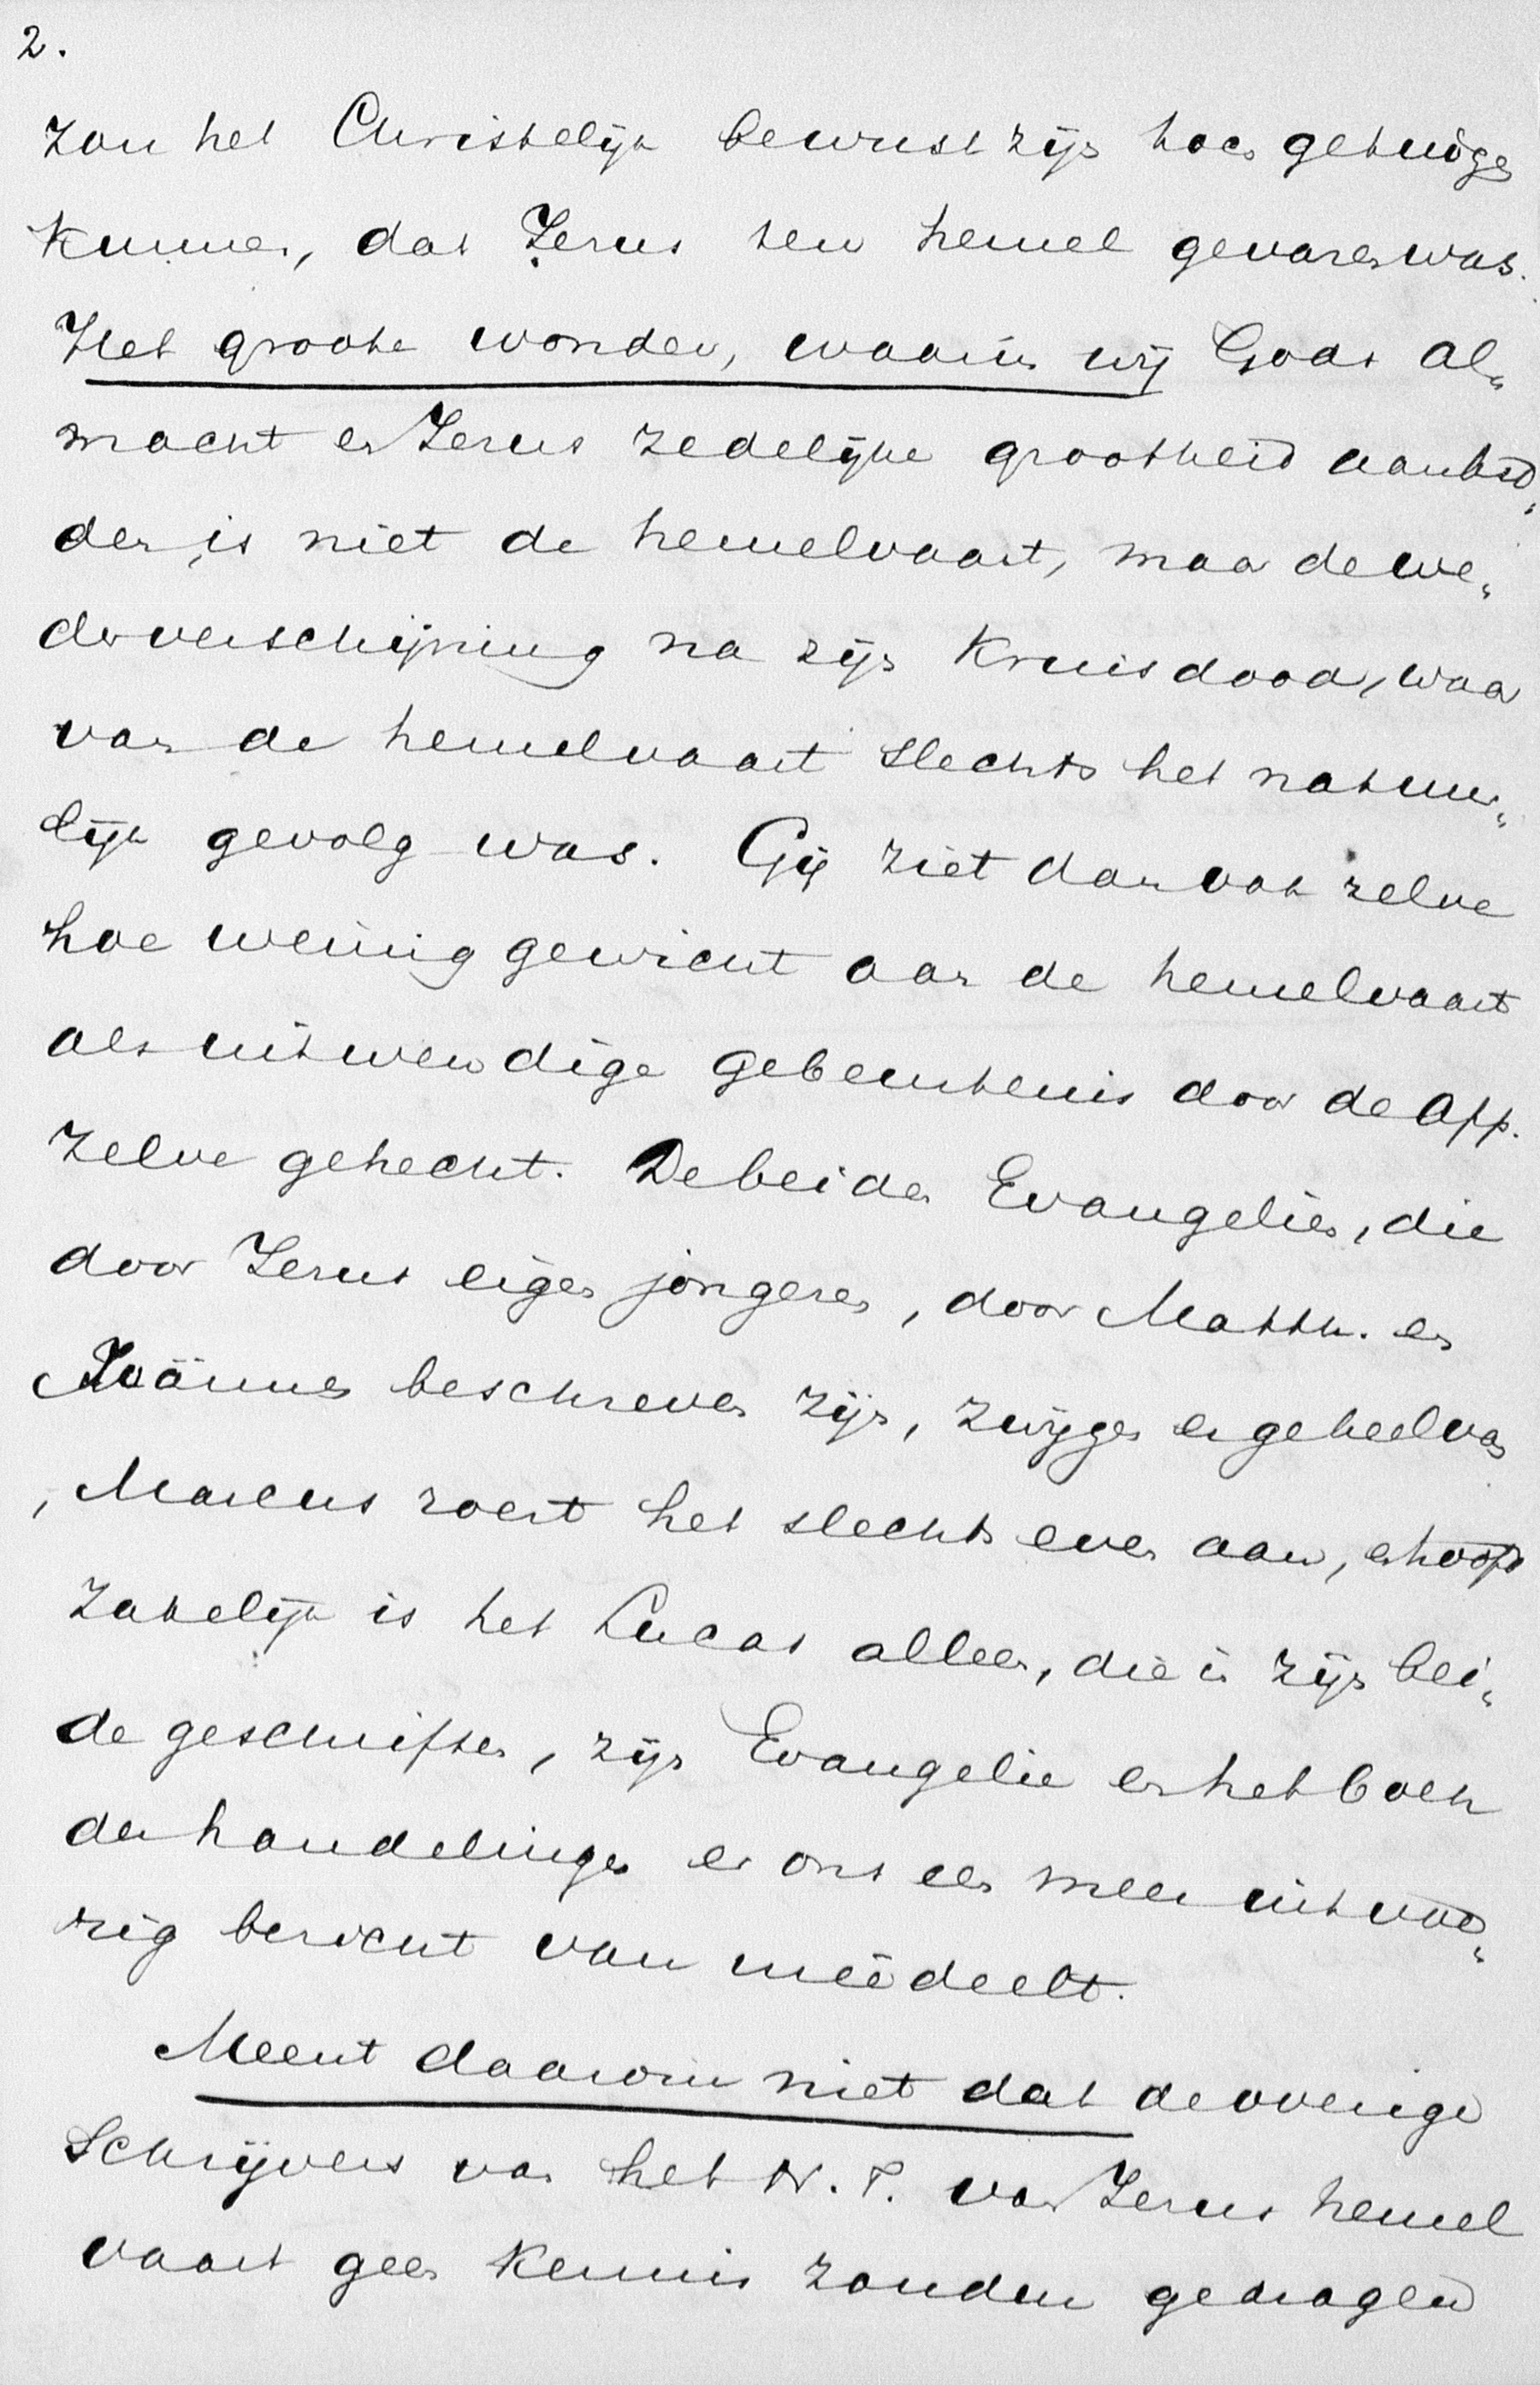 2.
zou het Christelijk bewustzijn hoe getuigen
kunnen, dat Jezus ten hemel gevaren was.
Het groote wonder, waarin wij Gods al„
macht en Jezus zedelijke grootheid aanbid„
den, is niet de hemelvaart, maar de we„
derverschijning na zijn Kruisdood, waar
van de hemelvaart slechts het natuur„
lijk gevolg was. Gij ziet dan ook zelve
hoe weinig gewicht aan de hemelvaart
als uitwendige gebeurtenis door de App.
zelve gehecht. De beide Evangeliën, die
door Jezus eigen jongeren, door Matth. en
Joännes beschreven zijn, zwijgen er geheel van
, Marcus roert het slechts even aan, en hoofd
zakelijk is het Lucas alleen, die in zijn bei„
de geschriften, zijn Evangelie en het boek
der handelingen er ons een meer uitvoe„
rig bericht van meêdeelt.
Meent daarom niet dat de overige
Schrijvers van het N. T. van Jezus hemel
vaart geen kennis zouden gedragen